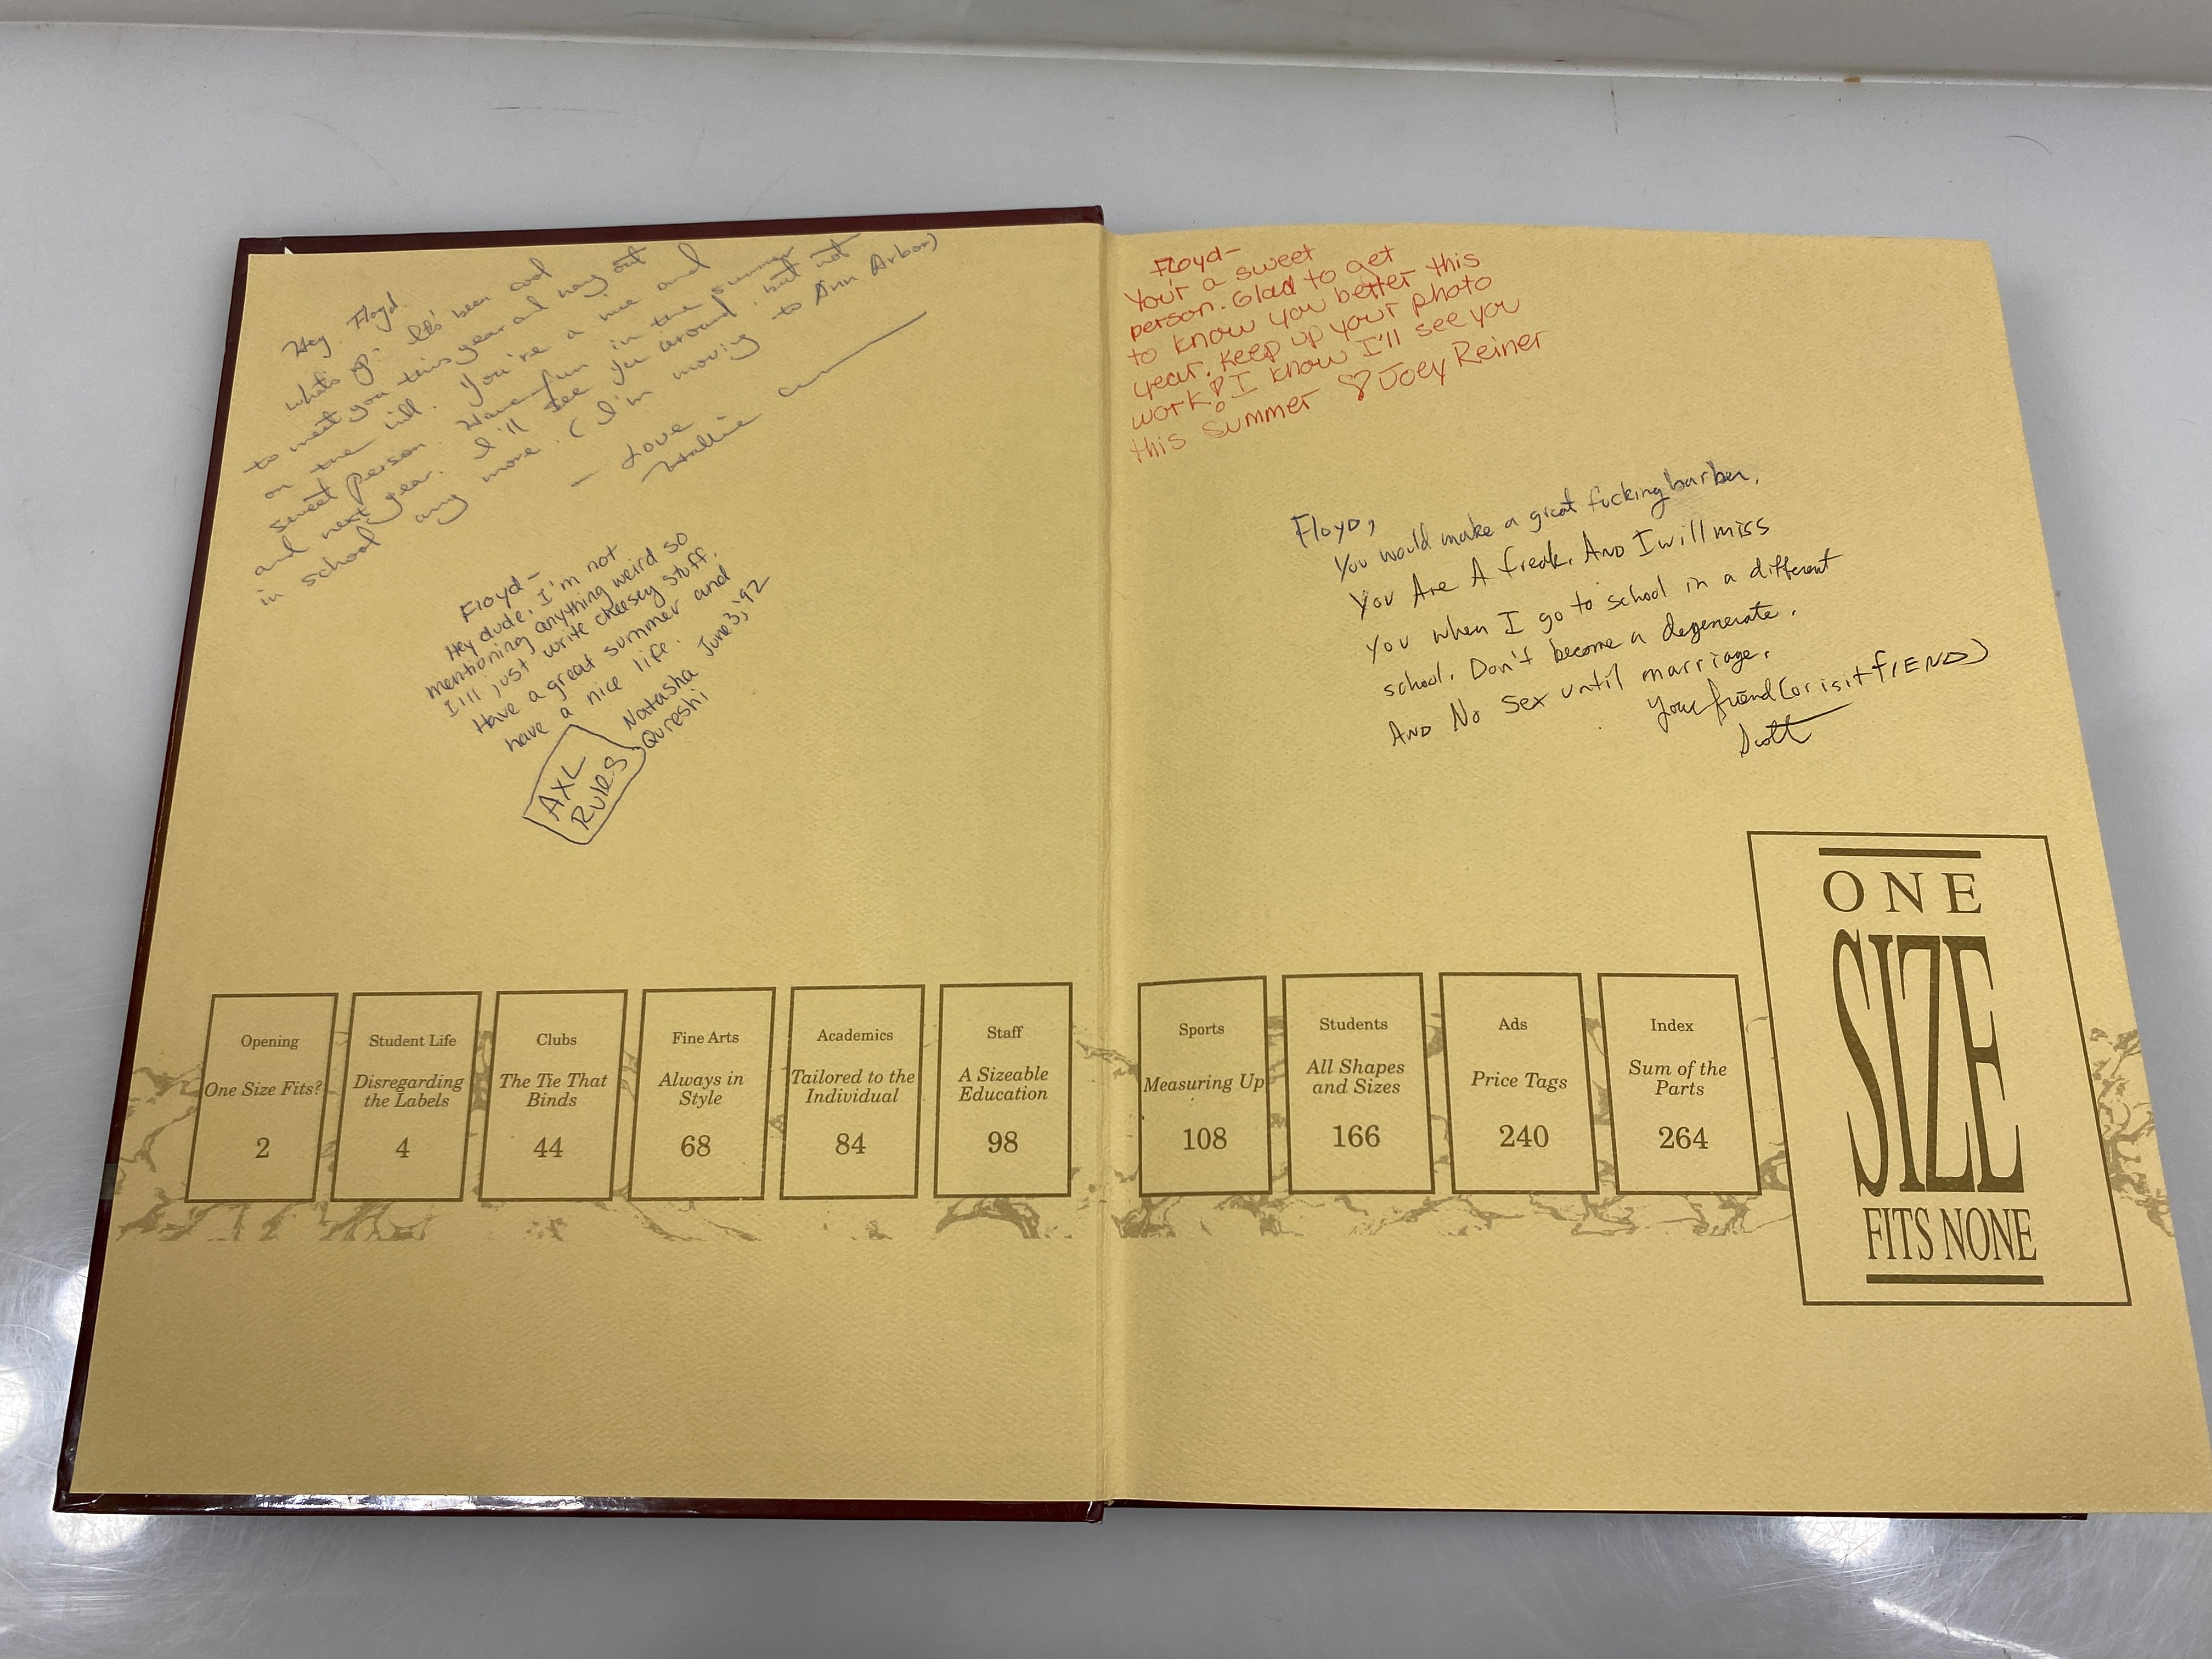 Hey Floyd.
what's up? It's been cool
to meet you this year and hang out
on the hill. You're a nice and
sweet person. Have fun in the summer
and next year. I'll see you around, but not
in school any more. (I'm moving to Ann Arbor)
— Love
Natalie
Floyd-
Hey dude, I'm not
mentioning anything weird so
I'll just write cheesy stuff.
Have a great summer and
have a nice life.
Natasha June 3, '92
Qureshi
AXL
RULES
Floyd-
Your a sweet
person. Glad to get
to know you better this
year. Keep up your photo
work! I know I'll see you
this summer ♡ Joey Reiner
Floyd,
You would make a great fucking barber.
You Are A freak. And I will miss
you when I go to school in a different
school. Don't become a degenerate.
And No Sex until marriage.
Your friend (or is it fIEND)
Scott
Opening
One Size Fits?
2
Student Life
Disregarding
the Labels
4
Clubs
The Tie That
Binds
44
Fine Arts
Always in
Style
68
Academics
Tailored to the
Individual
84
Staff
A Sizeable
Education
98
Sports
Measuring Up
108
Students
All Shapes
and Sizes
166
Ads
Price Tags
240
Index
Sum of the
Parts
264
ONE
SIZE
FITS NONE